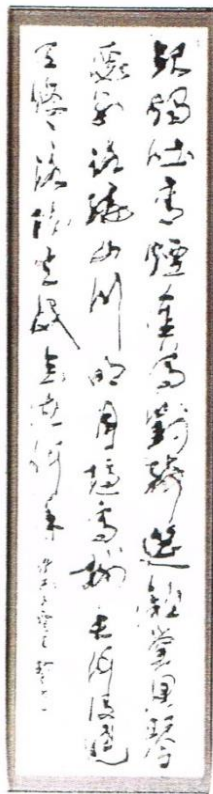 銀燭吐青煙金尊對綺筵離堂思琴
瑟別路繞山川明月隱高樹長河沒曉
天悠々洛陽去此會在何年